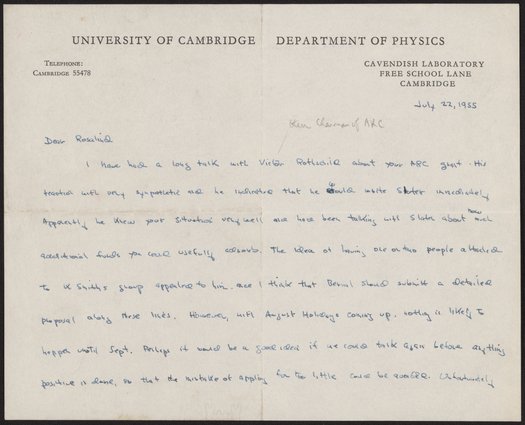 UNIVERSITY OF CAMBRIDGE DEPARTMENT OF PHYSICS
TELEPHONE:
CAMBRIDGE 55478
CAVENDISH LABORATORY
FREE SCHOOL LANE
CAMBRIDGE
July 22, 1955
then Chairman of ARC
Dear Rosalind
I have had a long talk with Victor Rothschild about your ARC grant. His
reaction was very sympathetic and he indicated that he would write Slater immediately
Apparently he knew your situation very well and have been talking with Slater about how much
additional funds you could usefully absorb. The idea of having one or two people attached
to K Smith's group appealed to him. and I think that Bernal should submit a detailed
proposal along these lines. However, with August Holidays coming up, nothing is likely to
happen until Sept. Perhaps it would be a good idea if we could talk again before anything
positive is done, so that the mistake of applying for too little could be avoided. Unfortunately